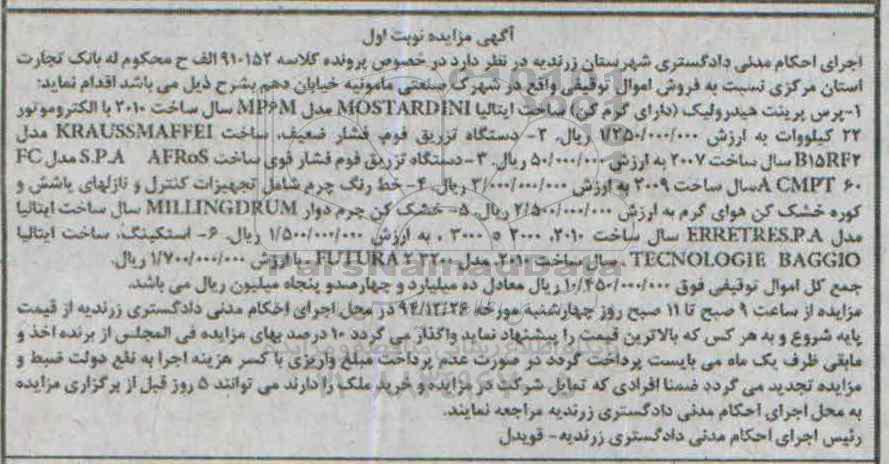 آگهی مزایده نوبت اول
اجرای احکام مدنی دادگستری شهرستان زرندیه در نظر دارد در خصوص پرونده کلاسه ۹۱۰۱۵۲ الف ح محکوم له بانک تجارت
استان مرکزی نسبت به فروش اموال توقیفی واقع در شهرک صنعتی مامونیه خیابان دهم بشرح ذیل می باشد اقدام نماید:
۱-پرس پرینت هیدرولیک (دارای گرم کن) ساخت ایتالیا MOSTARDINI مدل MP۶M سال ساخت ۲۰۱۰ با الکتروموتور
۲۲ کیلووات به ارزش ۱/۲۵۰/۰۰۰/۰۰۰ ریال. ۲- دستگاه تزریق فوم، فشار ضعیف، ساخت KRAUSSMAFFEI مدل
B۱۵RF۲ سال ساخت ۲۰۰۷ به ارزش ۵۰/۰۰۰/۰۰۰ ریال. ۳-دستگاه تزریق فوم فشار قوی ساخت S.P.A AFRoS مدل FC
۶۰ A CMPT سال ساخت ۲۰۰۹ به ارزش ۳/۰۰۰/۰۰۰/۰۰۰ ریال. ۴-خط رنگ چرم شامل تجهیزات کنترل و نازلهای پاشش و
کوره خشک کن هوای گرم به ارزش ۲/۵۰۰/۰۰۰/۰۰۰ ریال. ۵- خشک کن چرم دوار MILLINGDRUM سال ساخت ایتالیا
مدل ERRETRES.P.A سال ساخت ۲۰۱۰، ۲۰۰۰ ۵ ۳۰۰۰ ، به ارزش ۱/۵۰۰/۰۰۰/۰۰۰ ریال. ۶- استکینگ، ساخت ایتالیا
TECNOLOGIE BAGGIO ، سال ساخت ۲۰۱۰، مدل FUTURA ۲ ۳۲۰۰ ، با ارزش ۱/۷۰۰/۰۰۰/۰۰۰ ریال.
جمع کل اموال توقیفی فوق ۱۰/۴۵۰/۰۰۰/۰۰۰ ریال معادل ده میلیارد و چهارصدو پنجاه میلیون ریال می باشد.
مزایده از ساعت ۹ صبح تا ۱۱ صبح روز چهارشنبه مورخه ۹۴/۱۲/۲۶ در محل اجرای احکام مدنی دادگستری زرندیه از قیمت
پایه شروع و به هر کس که بالاترین قیمت را پیشنهاد نماید واگذار می گردد ۱۰ درصد بهای مزایده فی المجلس از برنده اخذ و
مابقی ظرف یک ماه می بایست پرداخت گردد در صورت عدم پرداخت مبلغ واریزی با کسر هزینه اجرا به نفع دولت ضبط و
مزایده تجدید می گردد ضمنا افرادی که تمایل شرکت در مزایده و خرید ملک را دارند می توانند ۵ روز قبل از برگزاری مزایده
به محل اجرای احکام مدنی دادگستری زرندیه مراجعه نمایند.
رئیس اجرای احکام مدنی دادگستری زرندیه- قویدل
ParsNamadData